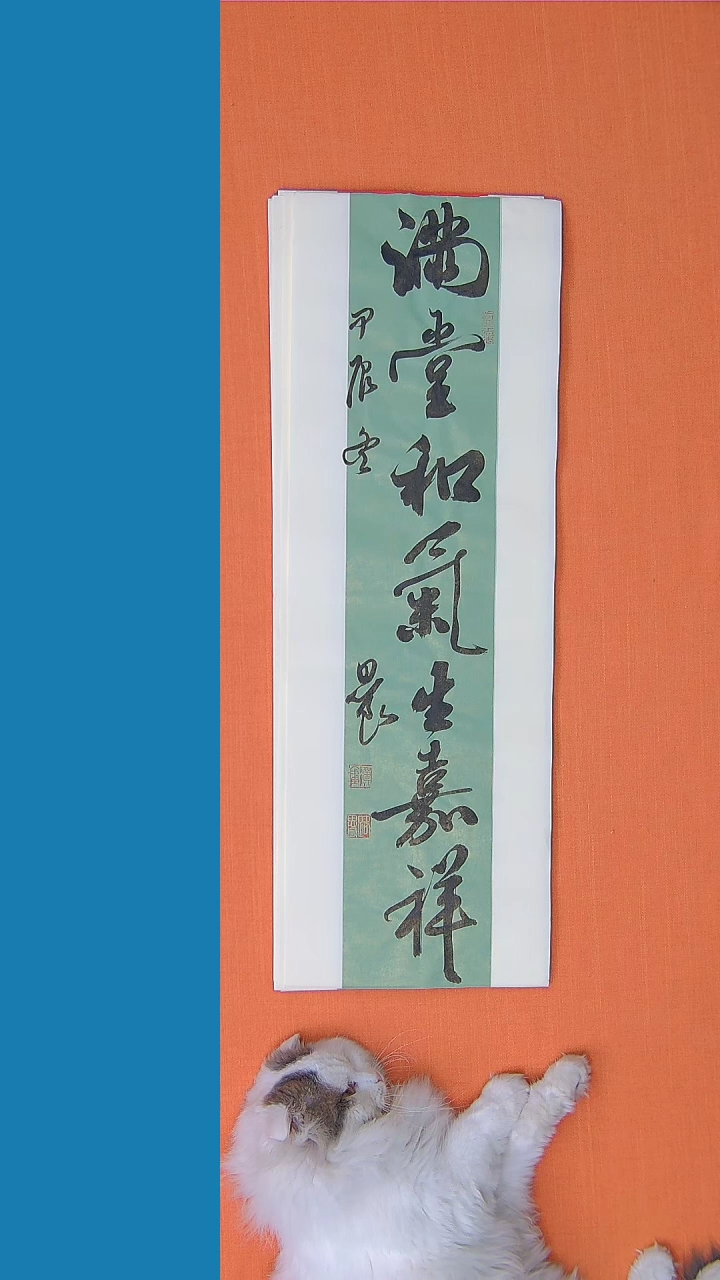 滿堂和氣生嘉祥
甲辰冬